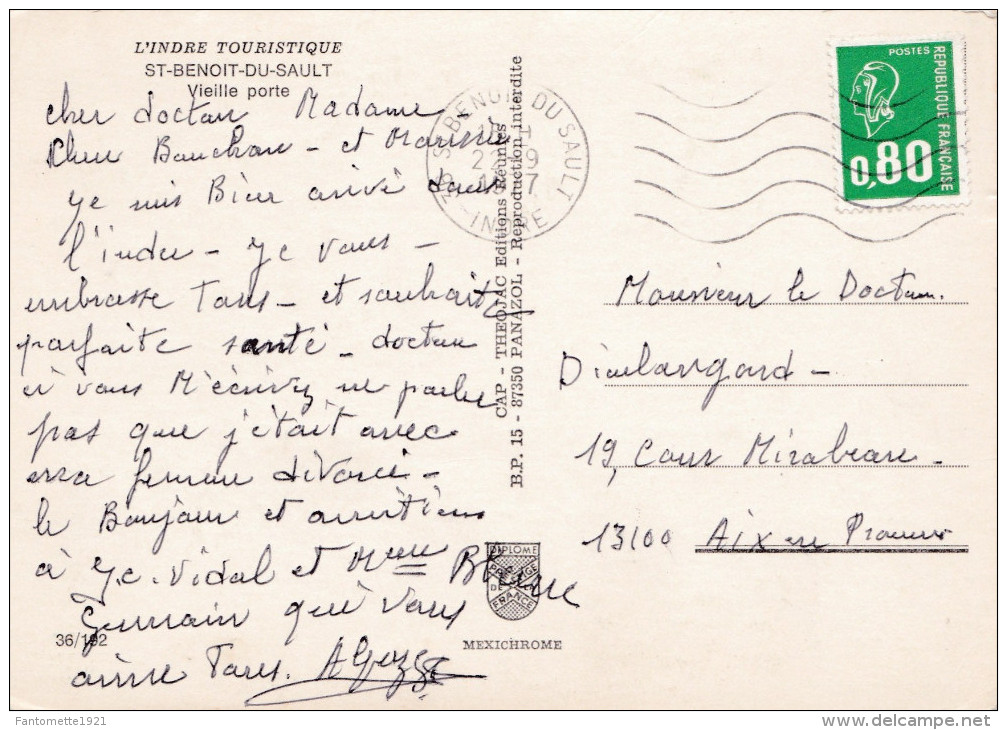 L'INDRE TOURISTIQUE
ST-BENOIT-DU-SAULT
Vieille porte
cher doctaur Madame
Cher et
je suis Bien arivé dans
l'indre - Je vous -
embrasse Tous - et souhaite
parfaite santé - docteur
si vous M'écrivez ne parlez
pas que j'étais avec
femme divorcé -
le Bonjour et
à J.C. Vidal et Mme
Germain que vous
aime Tous.
36/192
CAP - THEOJAC Editions Réunies
B.P. 15 - 87350 PANAZOL - Reproduction interdite
36 ST BENOIT DU SAULT
INDRE
POSTES
REPUBLIQUE FRANÇAISE
0,80
Monsieur le Docteur
19, Cour Mirabeau -
13100 Aix en Provence
DIPLOME
PRESTIGE
DE
FRANCE
MEXICHROME
Fantomette1921
delcampe.net